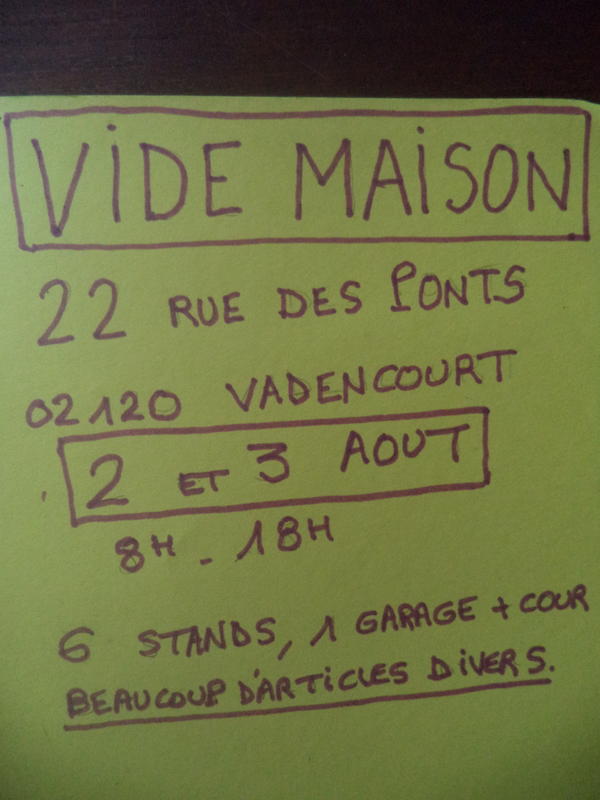 ViDE MAiSON
22 RUE DES PONTS
02120 VADENCOURT
2 ET 3 AOUT
8H - 18H
6 STANDS, 1 GARAGE + COUR
BEAUCOUP D'ARTiCLES DiVERS.